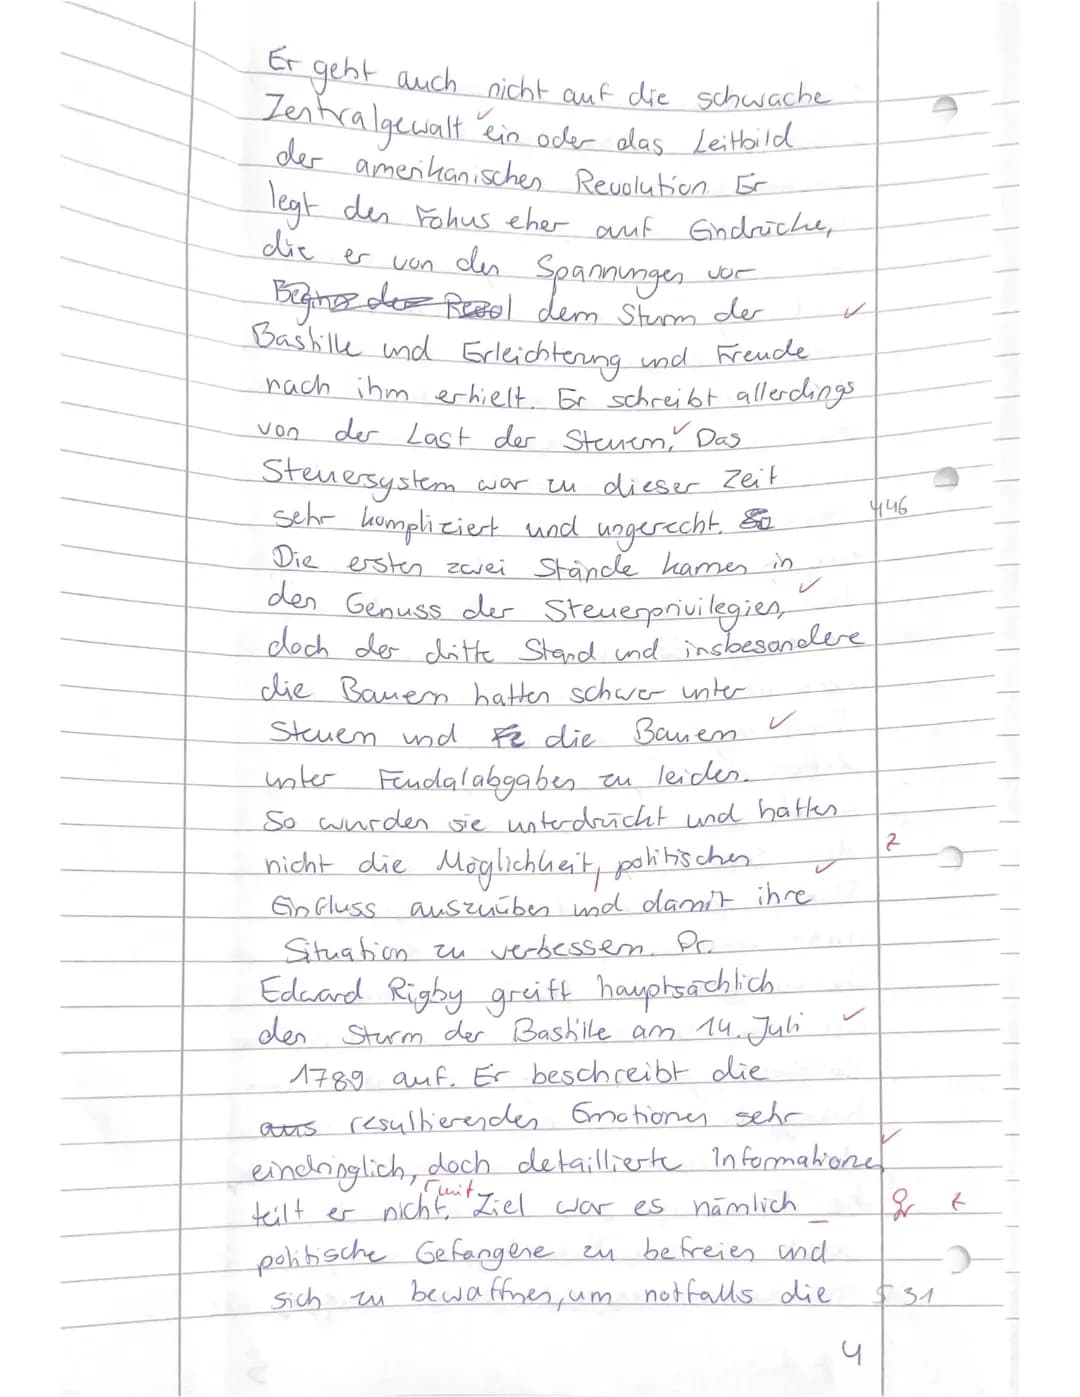 Er geht auch nicht auf die schwache
Zentralgewalt ein oder das Leitbild
der amerikanischen Revolution. Er
legt den Fokus eher auf Eindrücke,
die er von den Spannungen vor
dem Sturm der
Bastille und Erleichterung und Freude
nach ihm erhielt. Er schreibt allerdings
von der Last der Steuern. Das
Steuersystem war zu dieser Zeit
sehr kompliziert und ungerecht. So
446
Die ersten zwei Stände kamen in
den Genuss der Steuerprivilegien,
doch der dritte Stand und insbesondere
die Bauern hatten schwer unter
Steuern und die Bauern
unter Feudalabgaben zu leiden.
So wurden sie unterdrückt und hatten
nicht die Möglichkeit, politischen
z
Einfluss auszuüben und damit ihre
Situation zu verbessern. Dr.
Edward Rigby greift hauptsächlich
den Sturm der Bastille am 14. Juli
1789 auf. Er beschreibt die
aus resultierenden Emotionen sehr
eindringlich, doch detaillierte Informationen
teilt er nicht mit. Ziel war es nämlich
Gr z
politische Gefangene zu befreien und
sich zu bewaffnen, um notfalls die
531
4